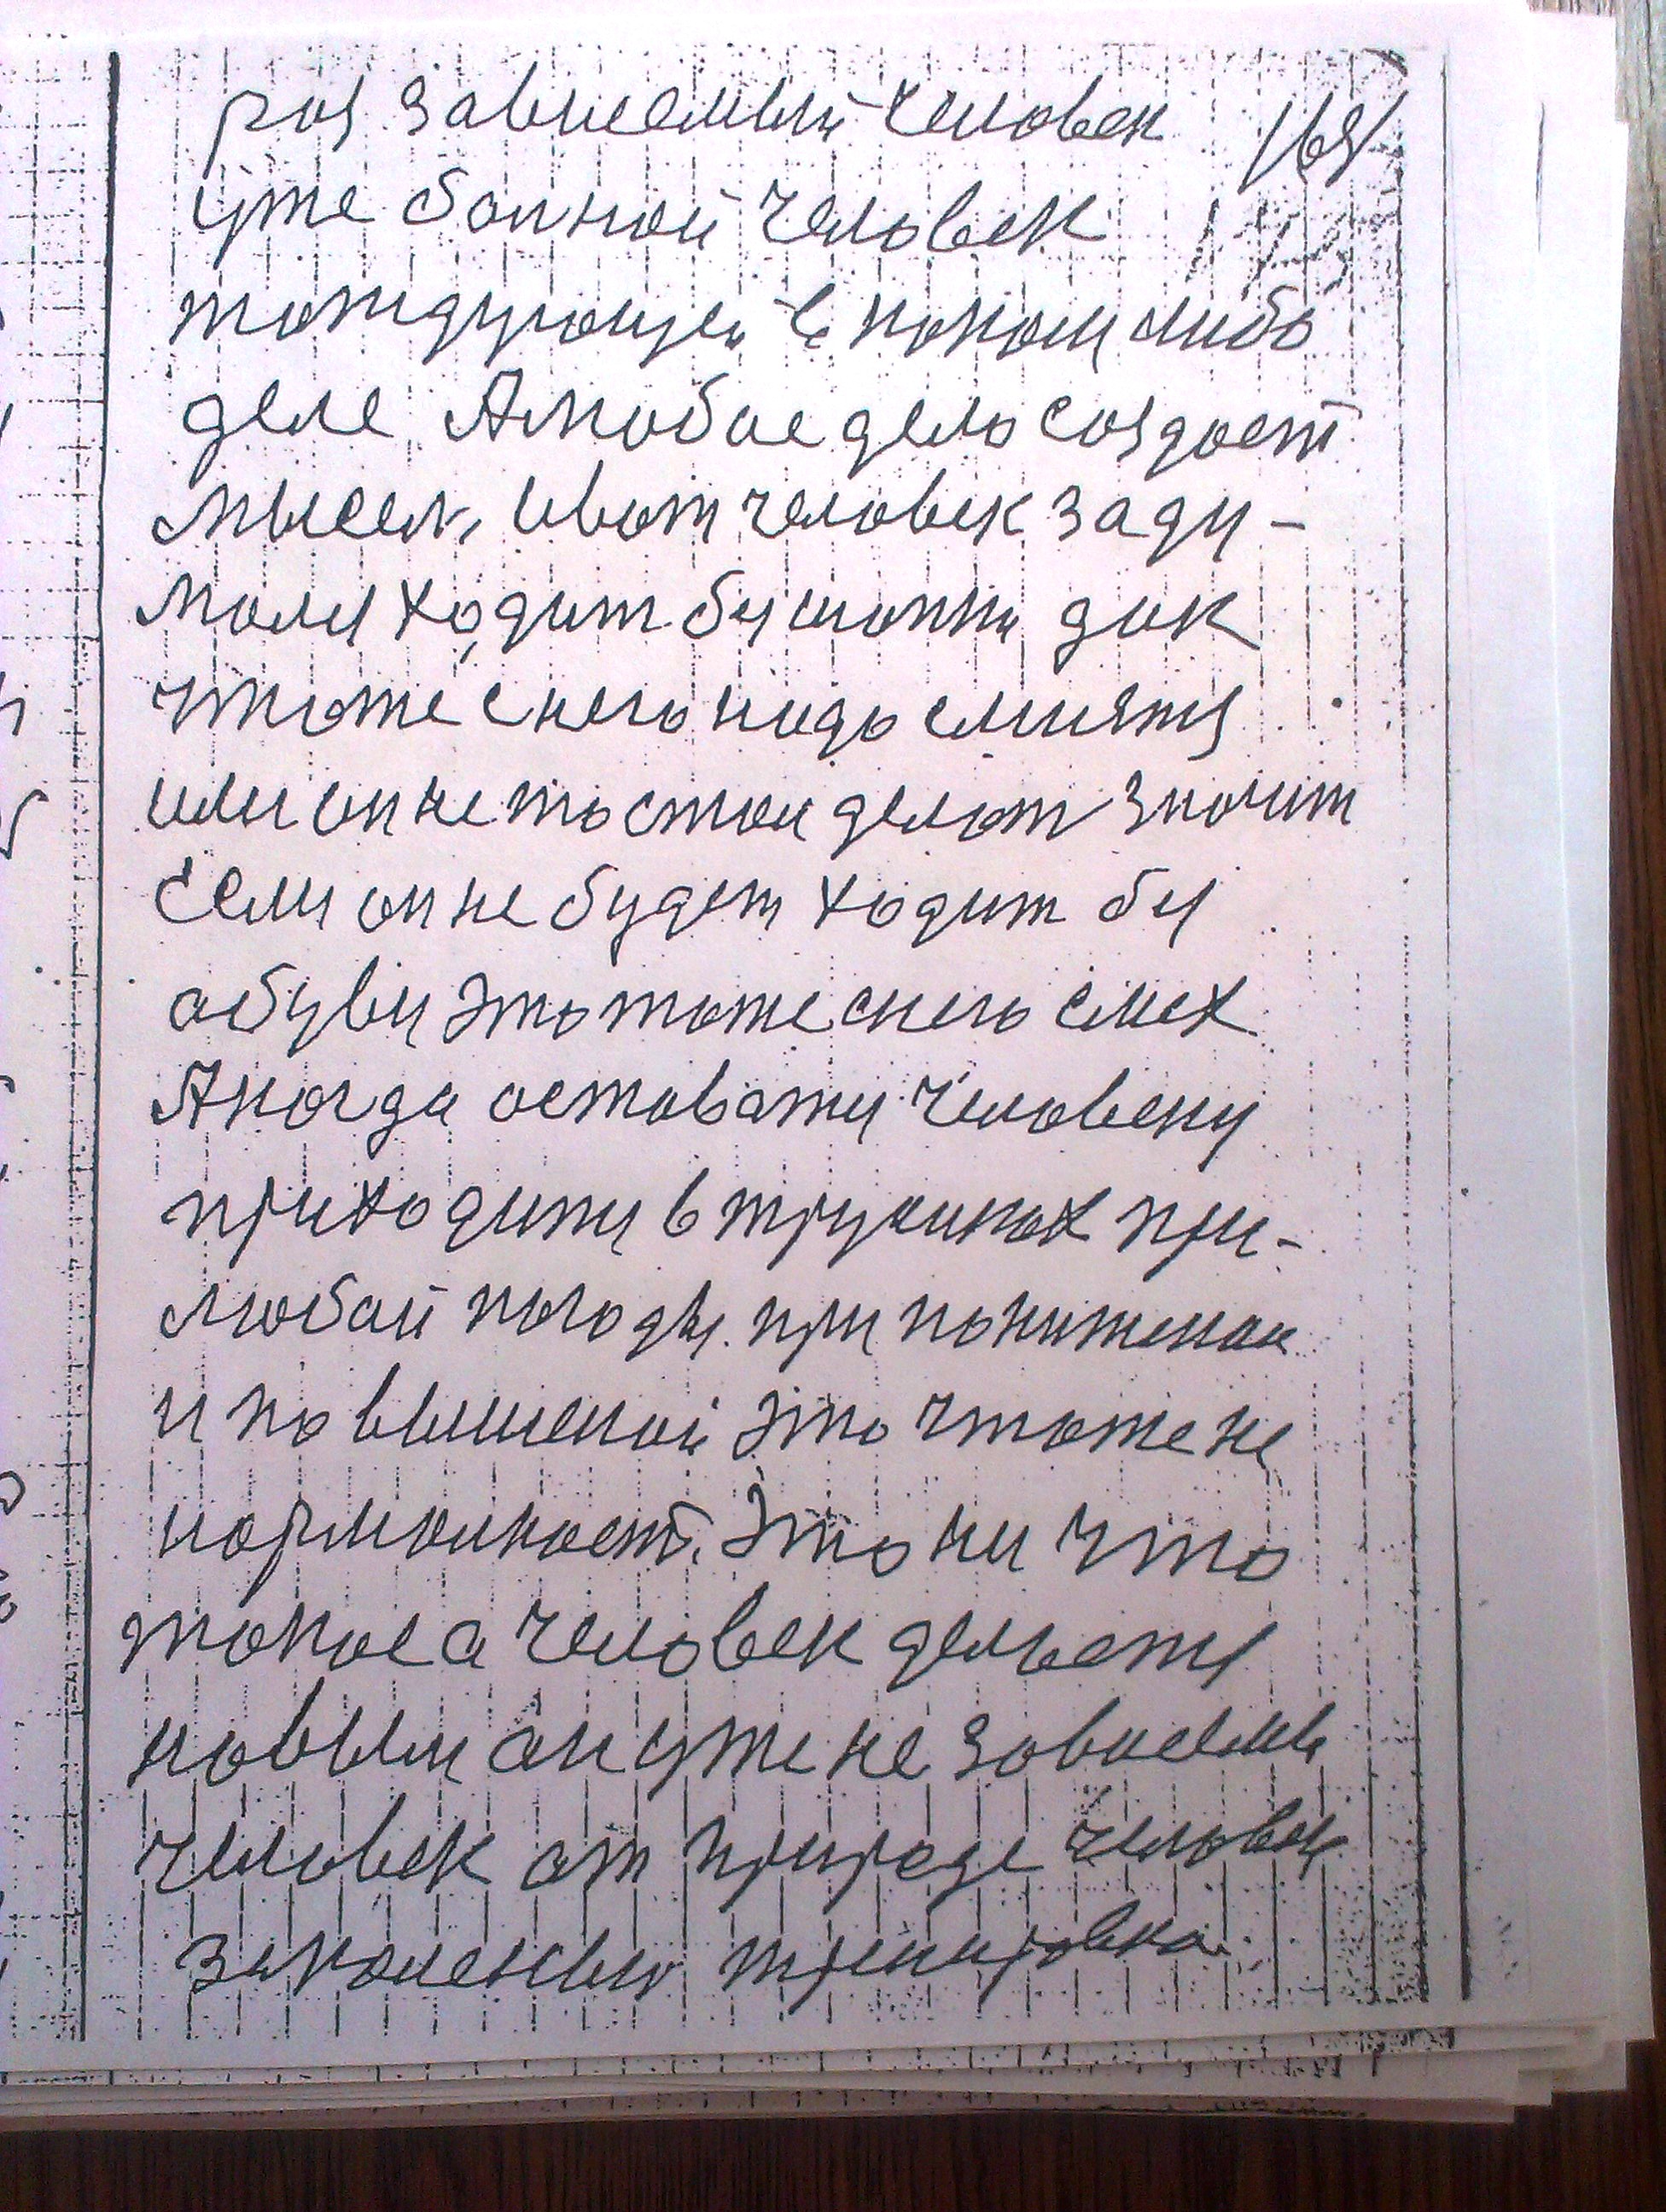 раз зависемый человек 169
уже болной человек 173
тождующей в каком либо
деле А любое дело создает
мысел, и вот человек заду-
мался ходит без шапки дак
что же с него надо смиятся
или он не то стал делат значит
Если он не будет ходит без
обуви это тоже с него смех
А когда оставатся человеку
приходится в трусиках при-
любой погоды. при пониженой
и по вышеной это что же не
нормалност. Это ни что
такое а человек делается
новым он уже не зависем
человек от природе человек
закаленый тренировка.